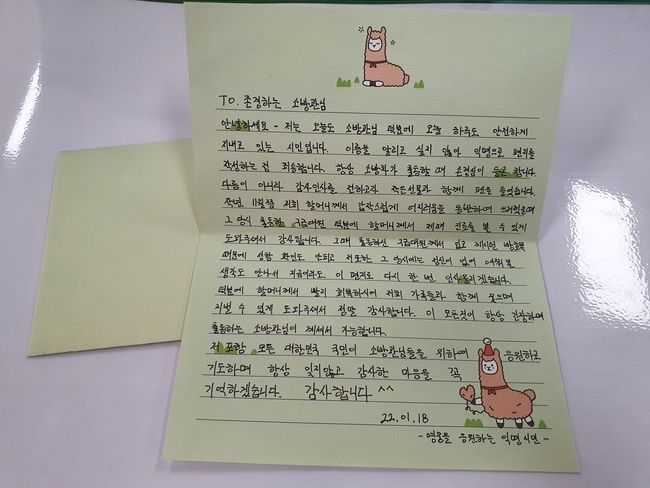 TO. 존경하는 소방관님
안녕하세요 - 저는 오늘도 소방관님 덕분에 오늘 하루도 안전하게
지내고 있는 시민입니다. 이름을 알리고 싶지 않아 익명으로 편지를
작성하는 점 죄송합니다. 항상 소방차가 출동할 때 존경심이 들곤 합니다.
다름이 아니라 감사인사를 전하고자 작은선물과 함께 펜을 들었습니다.
저희 할머니께서 갑작스럽게 어지러움을 동반하여 쓰러졌으며
그 당시 출동한 구급대원 덕분에 할머니께서 제때 진료를 볼 수 있게
도와주셔서 감사합니다. 그때 출동하신 구급대원께서 입고 계시던 방호복
때문에 성함 확인도 안되고 저 또한 그 당시에는 정신이 없어 여쭤볼
생각도 안나서 지금이라도 이 편지로 다시 한 번 인사올리겠습니다.
덕분에 할머니께서 빨리 회복하시어 저희 가족들과 함께 웃으며
지낼 수 있게 도와주셔서 정말 감사합니다. 이 모든것이 항상 긴장하며
출동하는 소방관님이 계셔서 가능합니다.
저 포함 모든 대한민국 국민이 소방관님들을 위하여 응원하고
기도하며 항상 잊지않고 감사한 마음을 꼭
기억하겠습니다. 감사합니다 ^^
22.01.18
- 영웅을 응원하는 익명시민 -